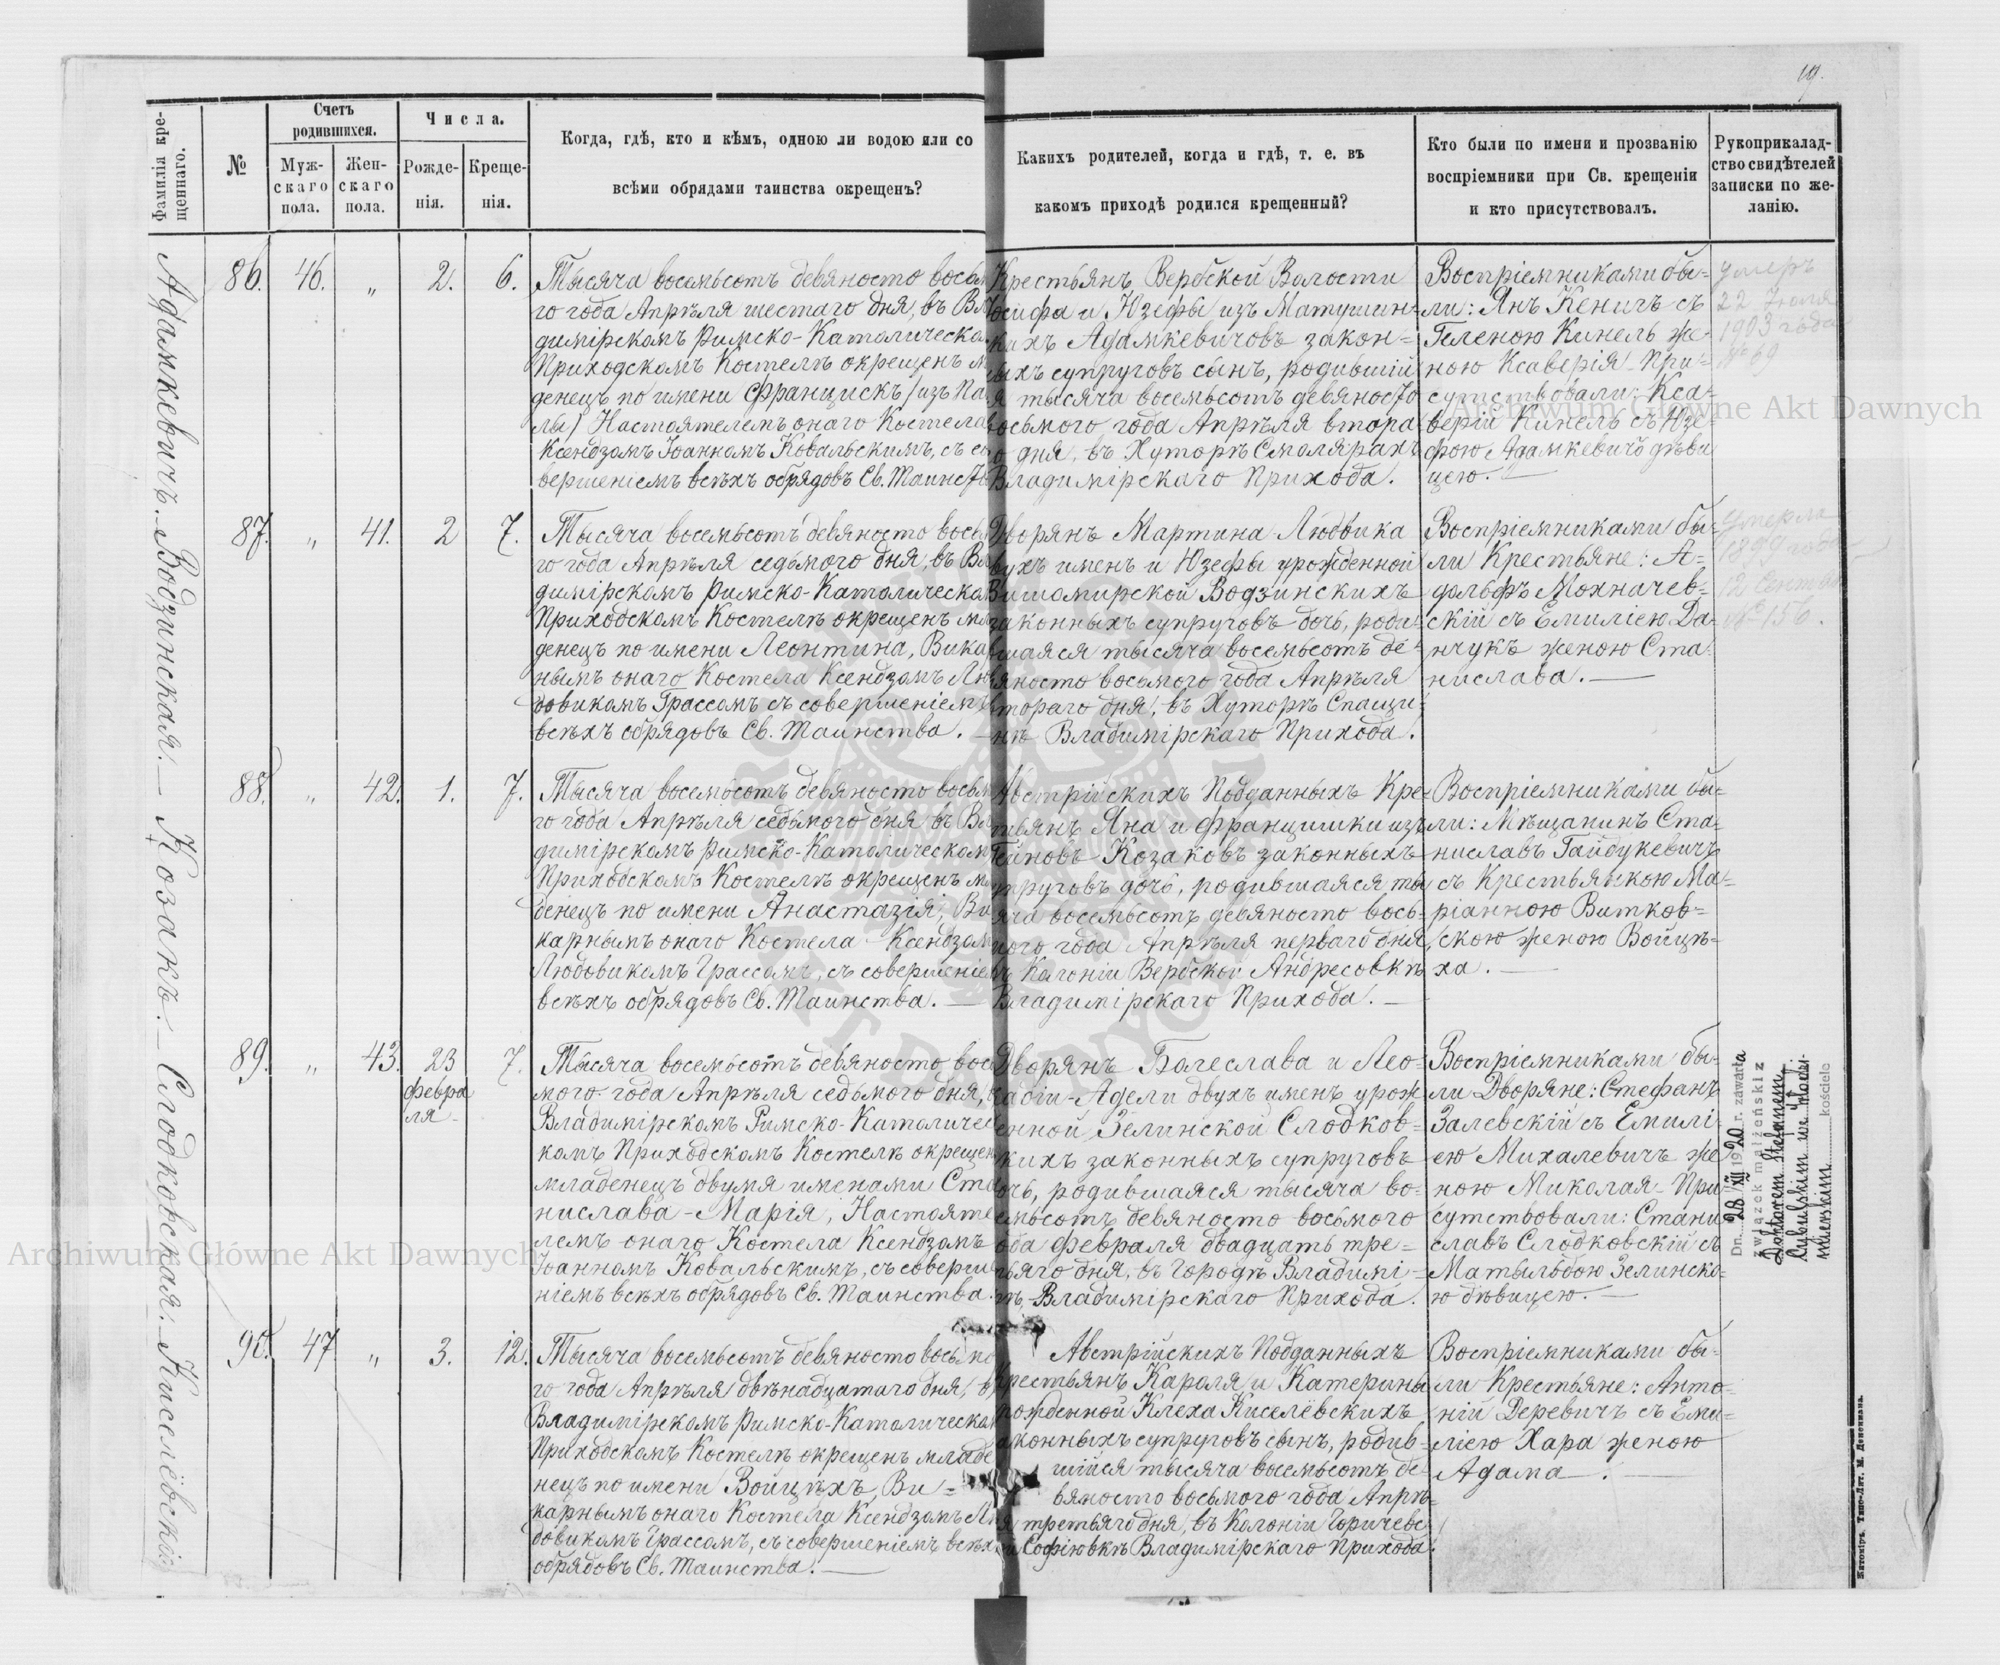 19.
Фамилія кре-
щеннаго.
№
Счетъ
родившихся.
Муж-
скаго
пола.
Жен-
скаго
пола.
Числа.
Рожде-
нія.
Креще-
нія.
Когда, гдѣ, кто и кѣмъ, одною ли водою или со
всѣми обрядами таинства окрещенъ?
Какихъ родителей, когда и гдѣ, т. е. въ
какомъ приходѣ родился крещенный?
Кто были по имени и прозванію
воспріемники при Св. крещеніи
и кто присутствовалъ.
Рукоприклад-
ство свидѣтелей
записки по же-
ланію.
Адамкевичъ.
86. 46. „ 2. 6.
Тысяча восемьсотъ девяносто восьм
го года Апрѣля шестаго дня, въ Вл
димірскомъ Римско-Католическо
Приходскомъ Костелѣ окрещенъ м
денецъ по имени Францискъ /изъ Па
лы/ Настоятелемъ онаго Костела
Ксендзомъ Іоанномъ Ковальскимъ, съ со
вершеніемъ всѣхъ обрядовъ Св. Таинств
Крестьянъ Вербской Волости
осифа и Юзефы изъ Матушин-
кихъ Адамкевичовъ закон=
ыхъ супруговъ сынъ, родившій
я тысяча восемьсотъ девяносто
осьмого года Апрѣля втора
о дня, въ Хуторѣ Смолярахъ
Владимірскаго Прихода.
Воспріемниками бы-
ли: Янъ Кеничъ съ
Геленою Кинель же-
ною Ксаверія При-
сутствовали: Кса-
верій Кинель съ Юзе-
фою Адамкевичъ дѣви
цею.
умеръ
22 Іюля
1903 года
№ 69
Водзинская.
87. „ 41. 2 7.
Тысяча восемьсотъ девяносто восьм
го года Апрѣля седьмого дня, въ Вл
димірскомъ Римско-Католическо
Приходскомъ Костелѣ окрещенъ мл
денецъ по имени Леонтина, Вика
нымъ онаго Костела Ксендзомъ Лю
довикомъ Грассомъ съ совершеніемъ
всѣхъ обрядовъ Св. Таинства.
Дворянъ Мартина Людвика
вухъ именъ и Юзефы урожденной
Житомирской Водзинскихъ
законныхъ супруговъ дочь, роди
шаяся тысяча восемьсотъ де-
яносто восьмого года Апрѣля
тораго дня, въ Хуторѣ Спащи
нѣ Владимірскаго Прихода.
Воспріемниками бы-
ли Крестьяне: А-
дольфъ Мохначев-
скій съ Емиліею Да-
нчукъ женою Ста-
нислава.
Умерла
1899 года
12 Сентяб
№ 156.
Козакъ.
88. „ 42. 1. 7.
Тысяча восемьсотъ девяносто восьм
го года Апрѣля седьмого дня въ Вл
димірскомъ Римско-Католическом
Приходскомъ Костелѣ окрещенъ м
денецъ по имени Анастазія, Ви
карнымъ онаго Костела Ксендзом
Людовикомъ Грассомъ, съ совершеніе
всѣхъ обрядовъ Св. Таинства.
Австрійскихъ Подданныхъ Кре-
тьянъ Яна и Францишки изъ
Козаковъ законныхъ
упруговъ дочь, родившаяся ты
яча восемьсотъ девяносто вось-
ого года Апрѣля перваго дня,
ъ Колоніи Вербской Андресовкѣ
Владимірскаго Прихода.
Воспріемниками бы=
ли: Мѣщанинъ Ста-
ниславъ Гайдукевичъ
съ Крестьянкою Ма-
ріанною Витков=
скою женою Войцѣ-
ха.
Слодковская.
89. „ 43. 23
февра
ля
7.
Тысяча восемьсотъ девяносто вос
мого года Апрѣля седьмого дня,
Владимірскомъ Римско-Католичес
комъ Приходскомъ Костелѣ окрещен
младенецъ двумя именами Ста
нислава-Марія, Настояте
лемъ онаго Костела Ксендзомъ
Іоанномъ Ковальскимъ, съ соверше
ніемъ всѣхъ обрядовъ Св. Таинства.
Дворянъ Болеслава и Лео-
адіи-Адели двухъ именъ урож
енной Зелинской Слодков-
кихъ законныхъ супруговъ
очь, родившаяся тысяча во-
емьсотъ девяносто восьмого
ода февраля двадцать тре=
ьяго дня, въ Городѣ Владимі-
рѣ, Владимірскаго Прихода.
Воспріемниками бы-
ли Дворяне: Стефанъ
Залевскій съ Емилі-
ею Михалевичъ же
ною Миколая-При
сутствовали: Стани
славъ Слодковскій съ
Матыльдою Зелинско-
ю дѣвицею.
Dn. 28/XII 1920 r. zawarła
związek małżeński z
Lubuskim we
kościele
Киселёвскій
90. 47 „ 3. 12.
Тысяча восемьсотъ девяносто восьмо
го года Апрѣля двѣнадцатаго дня, въ
Владимірскомъ Римско-Католическо
Приходскомъ Костелѣ окрещенъ младе
нецъ по имени Войцѣхъ, Ви-
карнымъ онаго Костела Ксендзомъ Лю
довикомъ Грассомъ, съ совершеніемъ всѣх
обрядовъ Св. Таинства.
Австрійскихъ Подданныхъ
Крестьянъ Кароля и Катерины
рожденной Клеха Киселёвскихъ
аконныхъ супруговъ сынъ, родив-
шійся тысяча восемьсотъ де-
вяносто восьмого года Апрѣ-
я третьяго дня, въ Колоніи Горичевс
й Софіювкѣ Владимірскаго Прихода.
Воспріемниками бы-
ли Крестьяне: Анто-
ній Деревичъ съ Еми=
ліею Хара женою
Адама.
Житоміръ. Типо-Лит. М. Дененмана.
Archiwum Główne Akt Dawnych
Archiwum Główne Akt Dawnych